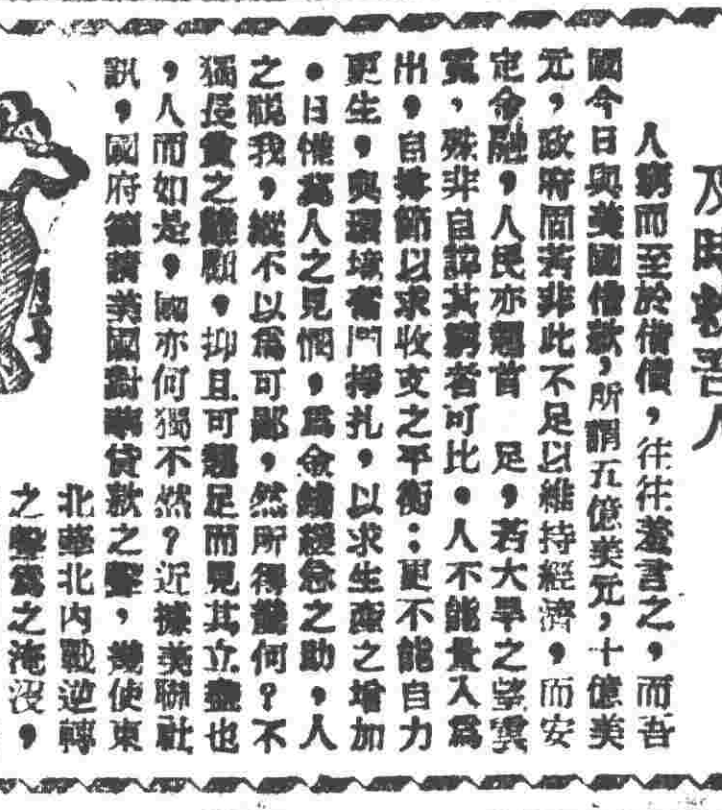 及時救吾人
人窮而至於借債，往往羞言之，而吾
國今日與美國借款，所謂五億美元，十億美
元，政府固若非此不足以維持經濟，而安
定金融，人民亦翹首 足，若大旱之望雲
霓，殊非自諱其窮者可比。人不能量入爲
出，自撙節以求收支之平衡：更不能自力
更生，與環境奮鬥掙扎，以求生產之增加
。日惟冀人之見憫，爲金錢緩急之助，人
之脫我，縱不以爲可鄙，然所得幾何？不
獨長貧之難顧，抑且可翹足而見其立盡也
，人而如是，國亦何獨不然？近據美聯社
訊，國府籲請美國對華貸款之聲，幾使東
北華北內戰逆轉
之聲爲之淹沒，